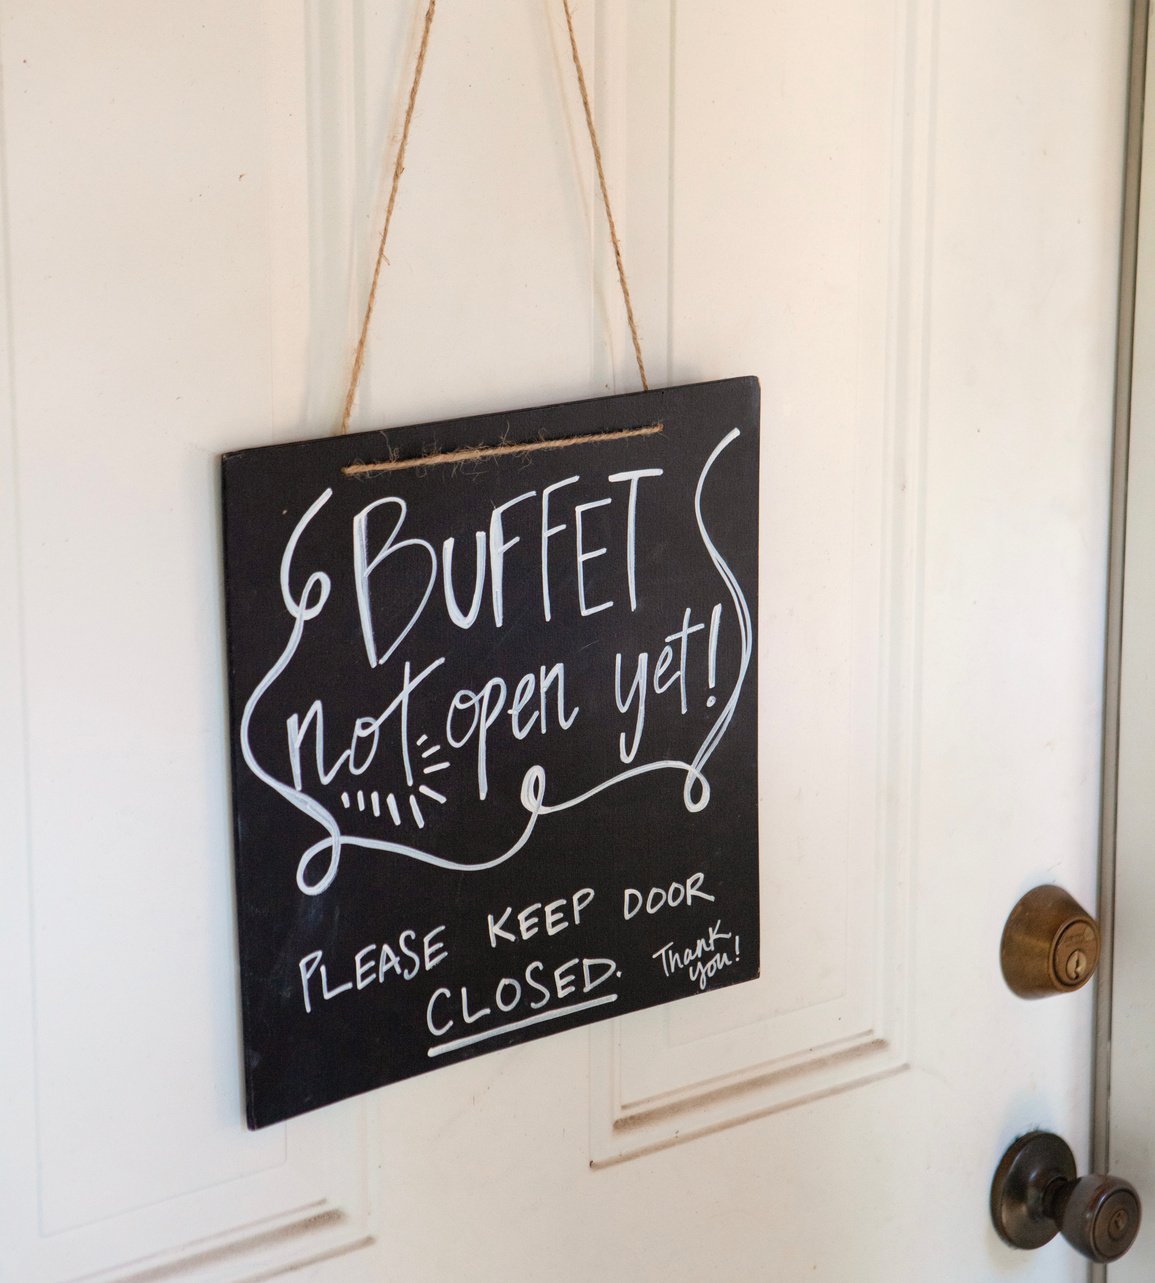 BUFFET
not open yet!
PLEASE KEEP DOOR
CLOSED.
Thank
you!